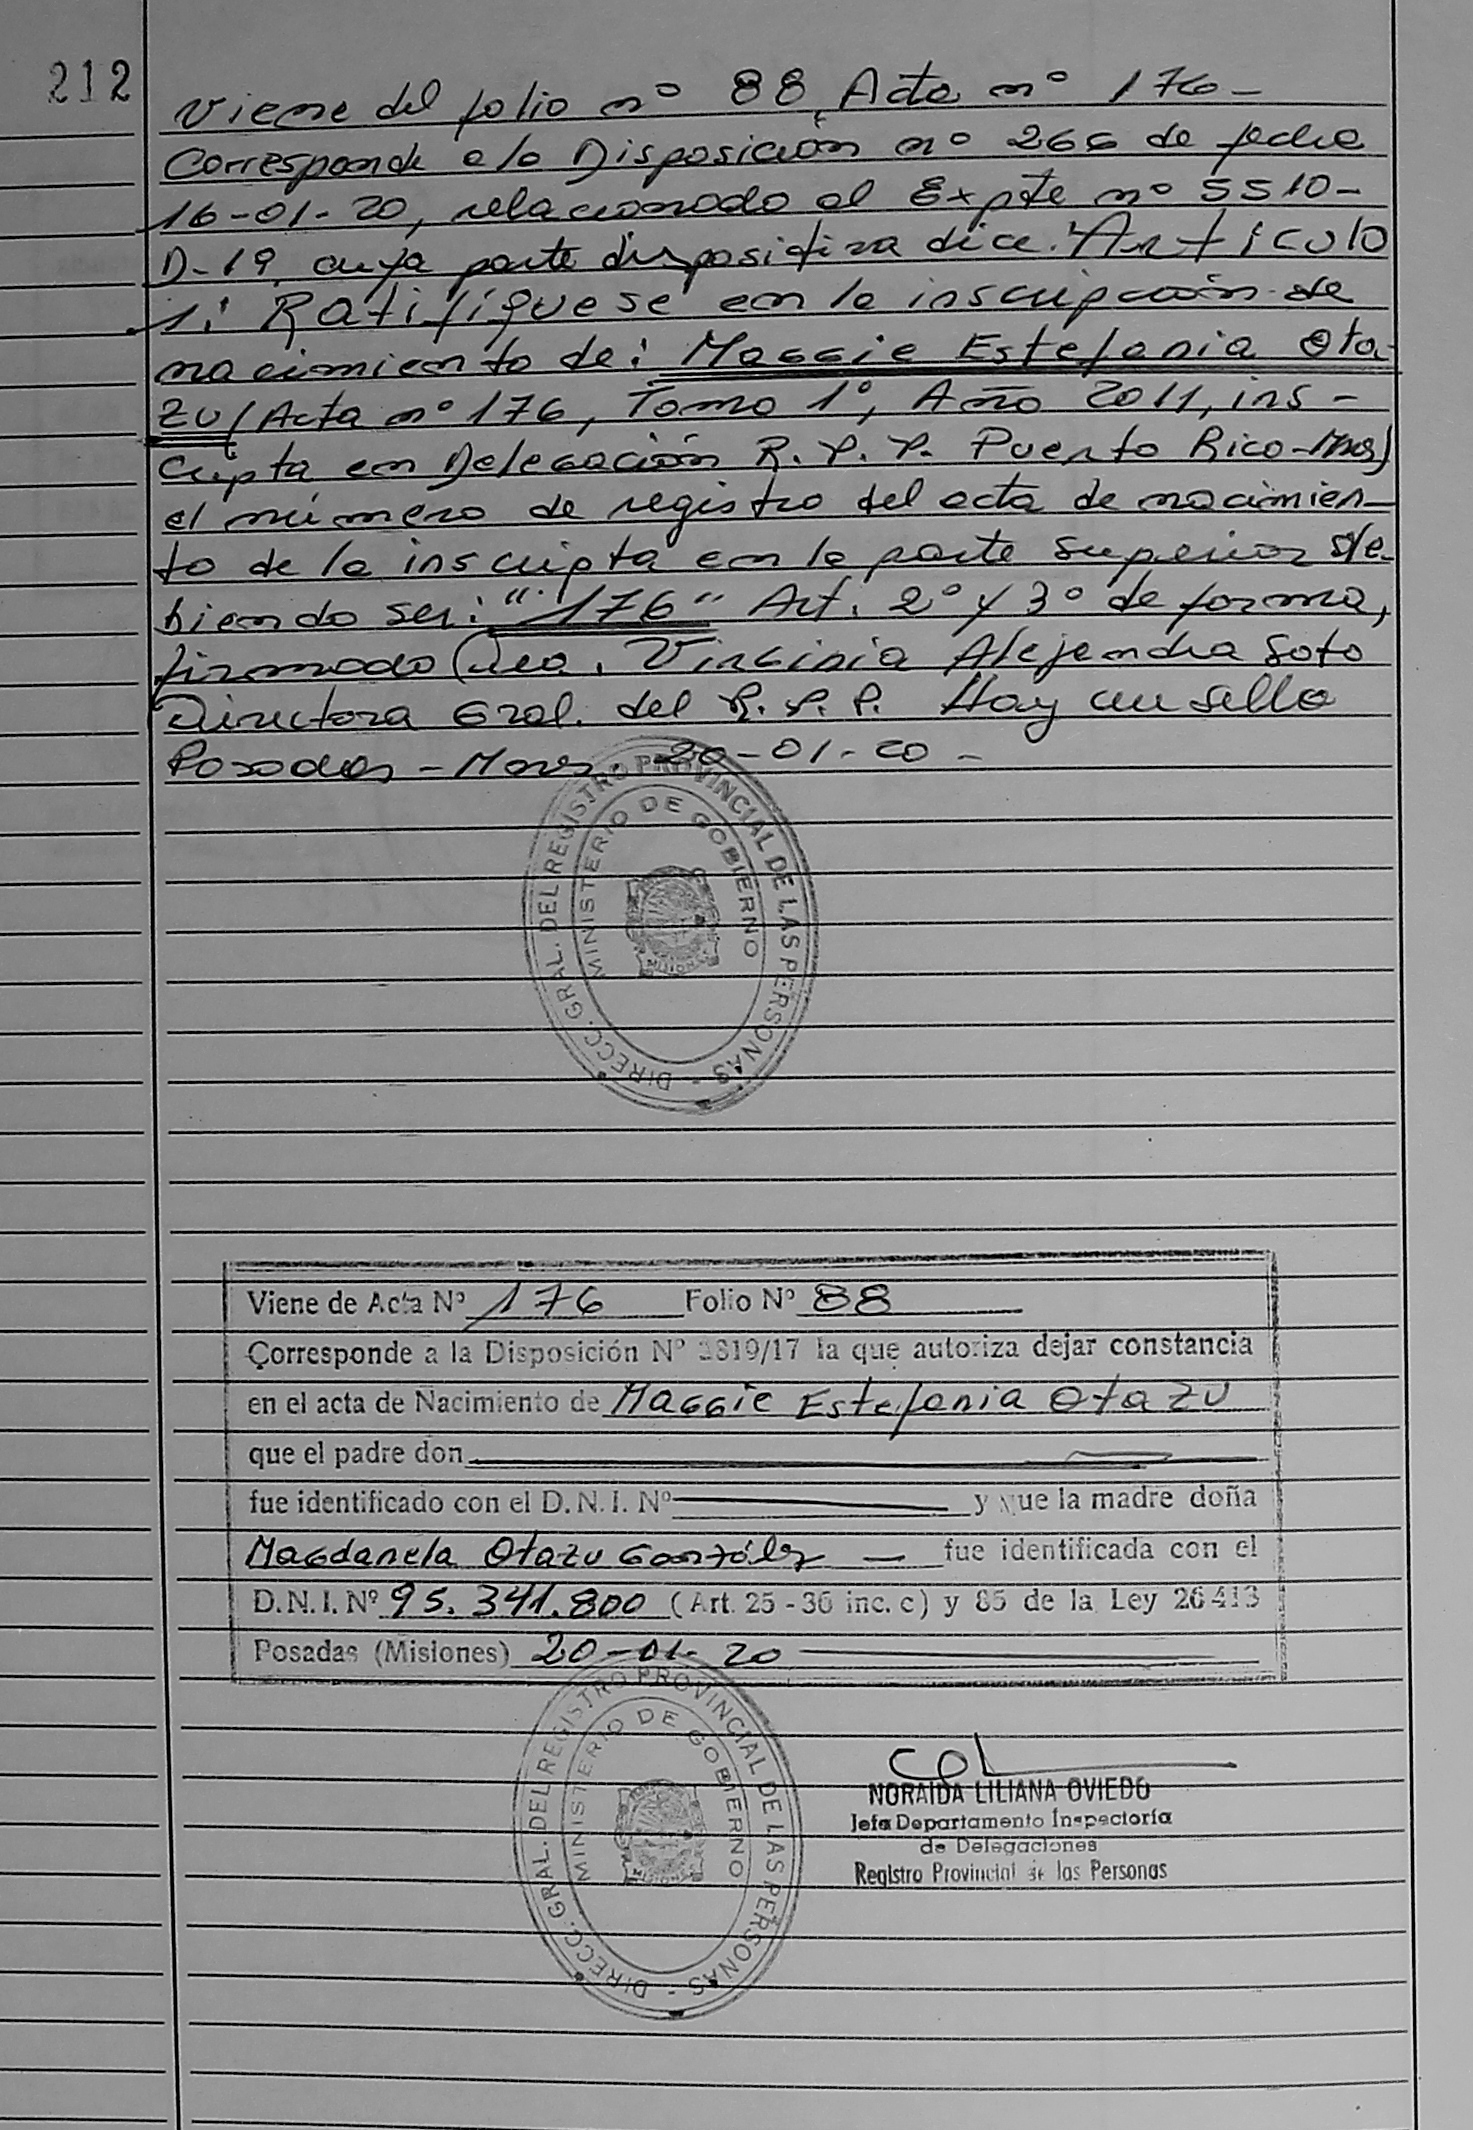 212
Viene del folio nº 88, Acta nº 176 -
Corresponde a la Disposición nº 266 de fecha
16-01-20, relacionado al Expte nº 5510-
D-19, cuya parte dispositiva dice. "Artículo
1: Ratifíquese en la inscripción de
nacimiento de: Maggie Estefania Ota-
zu/Acta nº 176, Tomo 1º, Año 2011, ins-
cripta en Delegación R. P. P. Puerto Rico-Mnes)
el número de registro del acta de nacimien-
to de la inscripta en la parte superior de-
biendo ser: "176" Art. 2º y 3º de forma,
firmado Virginia Alejandra Soto
Directora Gral. del R. P. P. Hay un sello
Posadas - Mnes. 20-01-20 -
DIRECC. GRAL. DEL REGISTRO PROVINCIAL DE LAS PERSONAS -
MINISTERIO DE GOBIERNO
MISIONES
Viene de Acta Nº 176 Folio Nº 88
Corresponde a la Disposición Nº 2819/17 la que autoriza dejar constancia
en el acta de Nacimiento de Maggie Estefania Otazu
que el padre don
fue identificado con el D. N. I. Nº y que la madre doña
Magdanela Otazu González - fue identificada con el
D. N. I. Nº 95.341.800 (Art. 25 - 36 inc. c) y 85 de la Ley 26413
Posadas (Misiones) 20-01-20
DIRECC. GRAL. DEL REGISTRO PROVINCIAL DE LAS PERSONAS -
MINISTERIO DE GOBIERNO
MISIONES
NORAIDA LILIANA OVIEDO
Jefa Departamento Inspectoría
de Delegaciones
Registro Provincial de las Personas